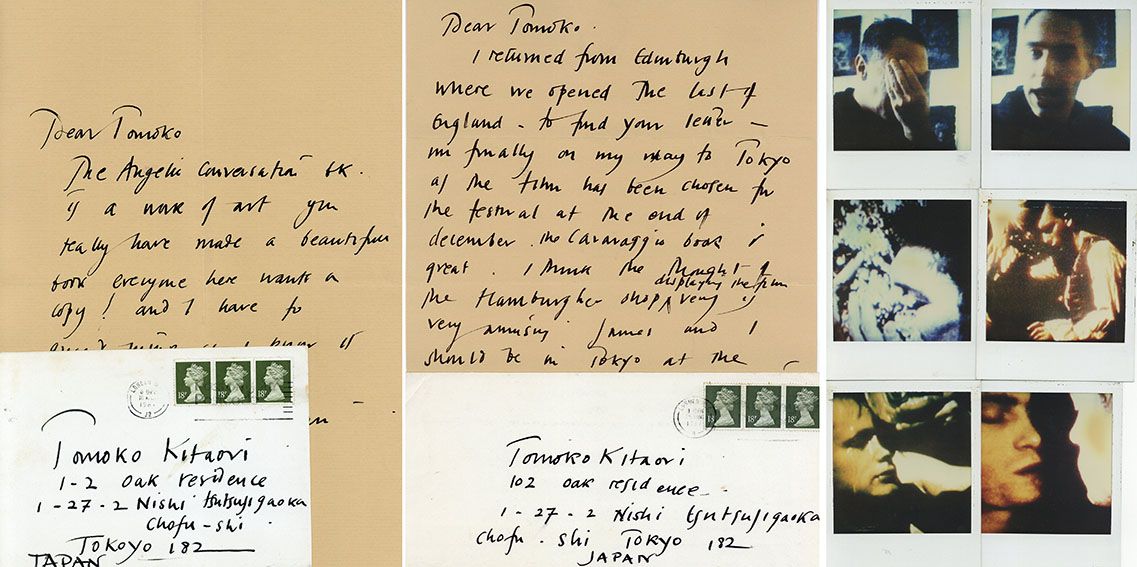 Dear Tomoko
The Angelic Conversation bk.
is a work of art you
really have made a beautiful
book everyone here wants a
copy! and I have to
18P 18P 18P
Tomoko Kitaori
1-2 oak residence
1-27-2 Nishi tsutsujigaoka
Chofu-shi
TOKOYO 182
JAPAN
Dear Tomoko.
I returned from Edinburgh
where we opened The Last of
England - to find your letter -
im finally on my way to Tokyo
as the film has been chosen for
the festival at the end of
december. the Caravaggio book is
great. I think the thought of
displaying the film
the Hamburgher shop very is
very amusing James and I
should be in Tokyo at the
18P
Tomoko Kitaori
102 oak residence
1-27-2 Nishi tsutsujigaoka
Chofu-shi TOKYO 182
JAPAN